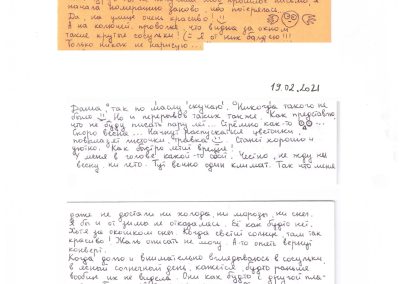 начала нумерацию заново, ибо потерялась
Да, на улице очень красиво!
А на колючей проволке что видна за окном
такие крутые сосульки! (= Я от них балдею!!!
Только никак не нарисую...
19.02.2021
Даша, так по маму скучаю! Никогда такого не
было Но и перерывов таких также. Как представлю
что не буду писать пару лет. Стрёмно как-то
Скоро весна... Начнут распускаться цветочки,
повылазят листочки, травка Станет хорошо и
уютно. Как быстро летит время!
У меня в голове какой-то сбой. Честно, не жду ни
весну, ни лето. Тут вечно один климат. Так что меня
даже не достали ни холода, ни морозы, ни снег.
Я бы и от зимы не отказалась. Её как будто нет.
Хотя за окошком снег. Когда светит солнце там так
красиво! Жаль описать не могу. А то опять вернут
конверт.
Когда долго и внимательно вглядываюсь в сосульки,
в ясный солнечный день, кажется, будто раньше
вообще их не видела. Они как будто с другой пла-